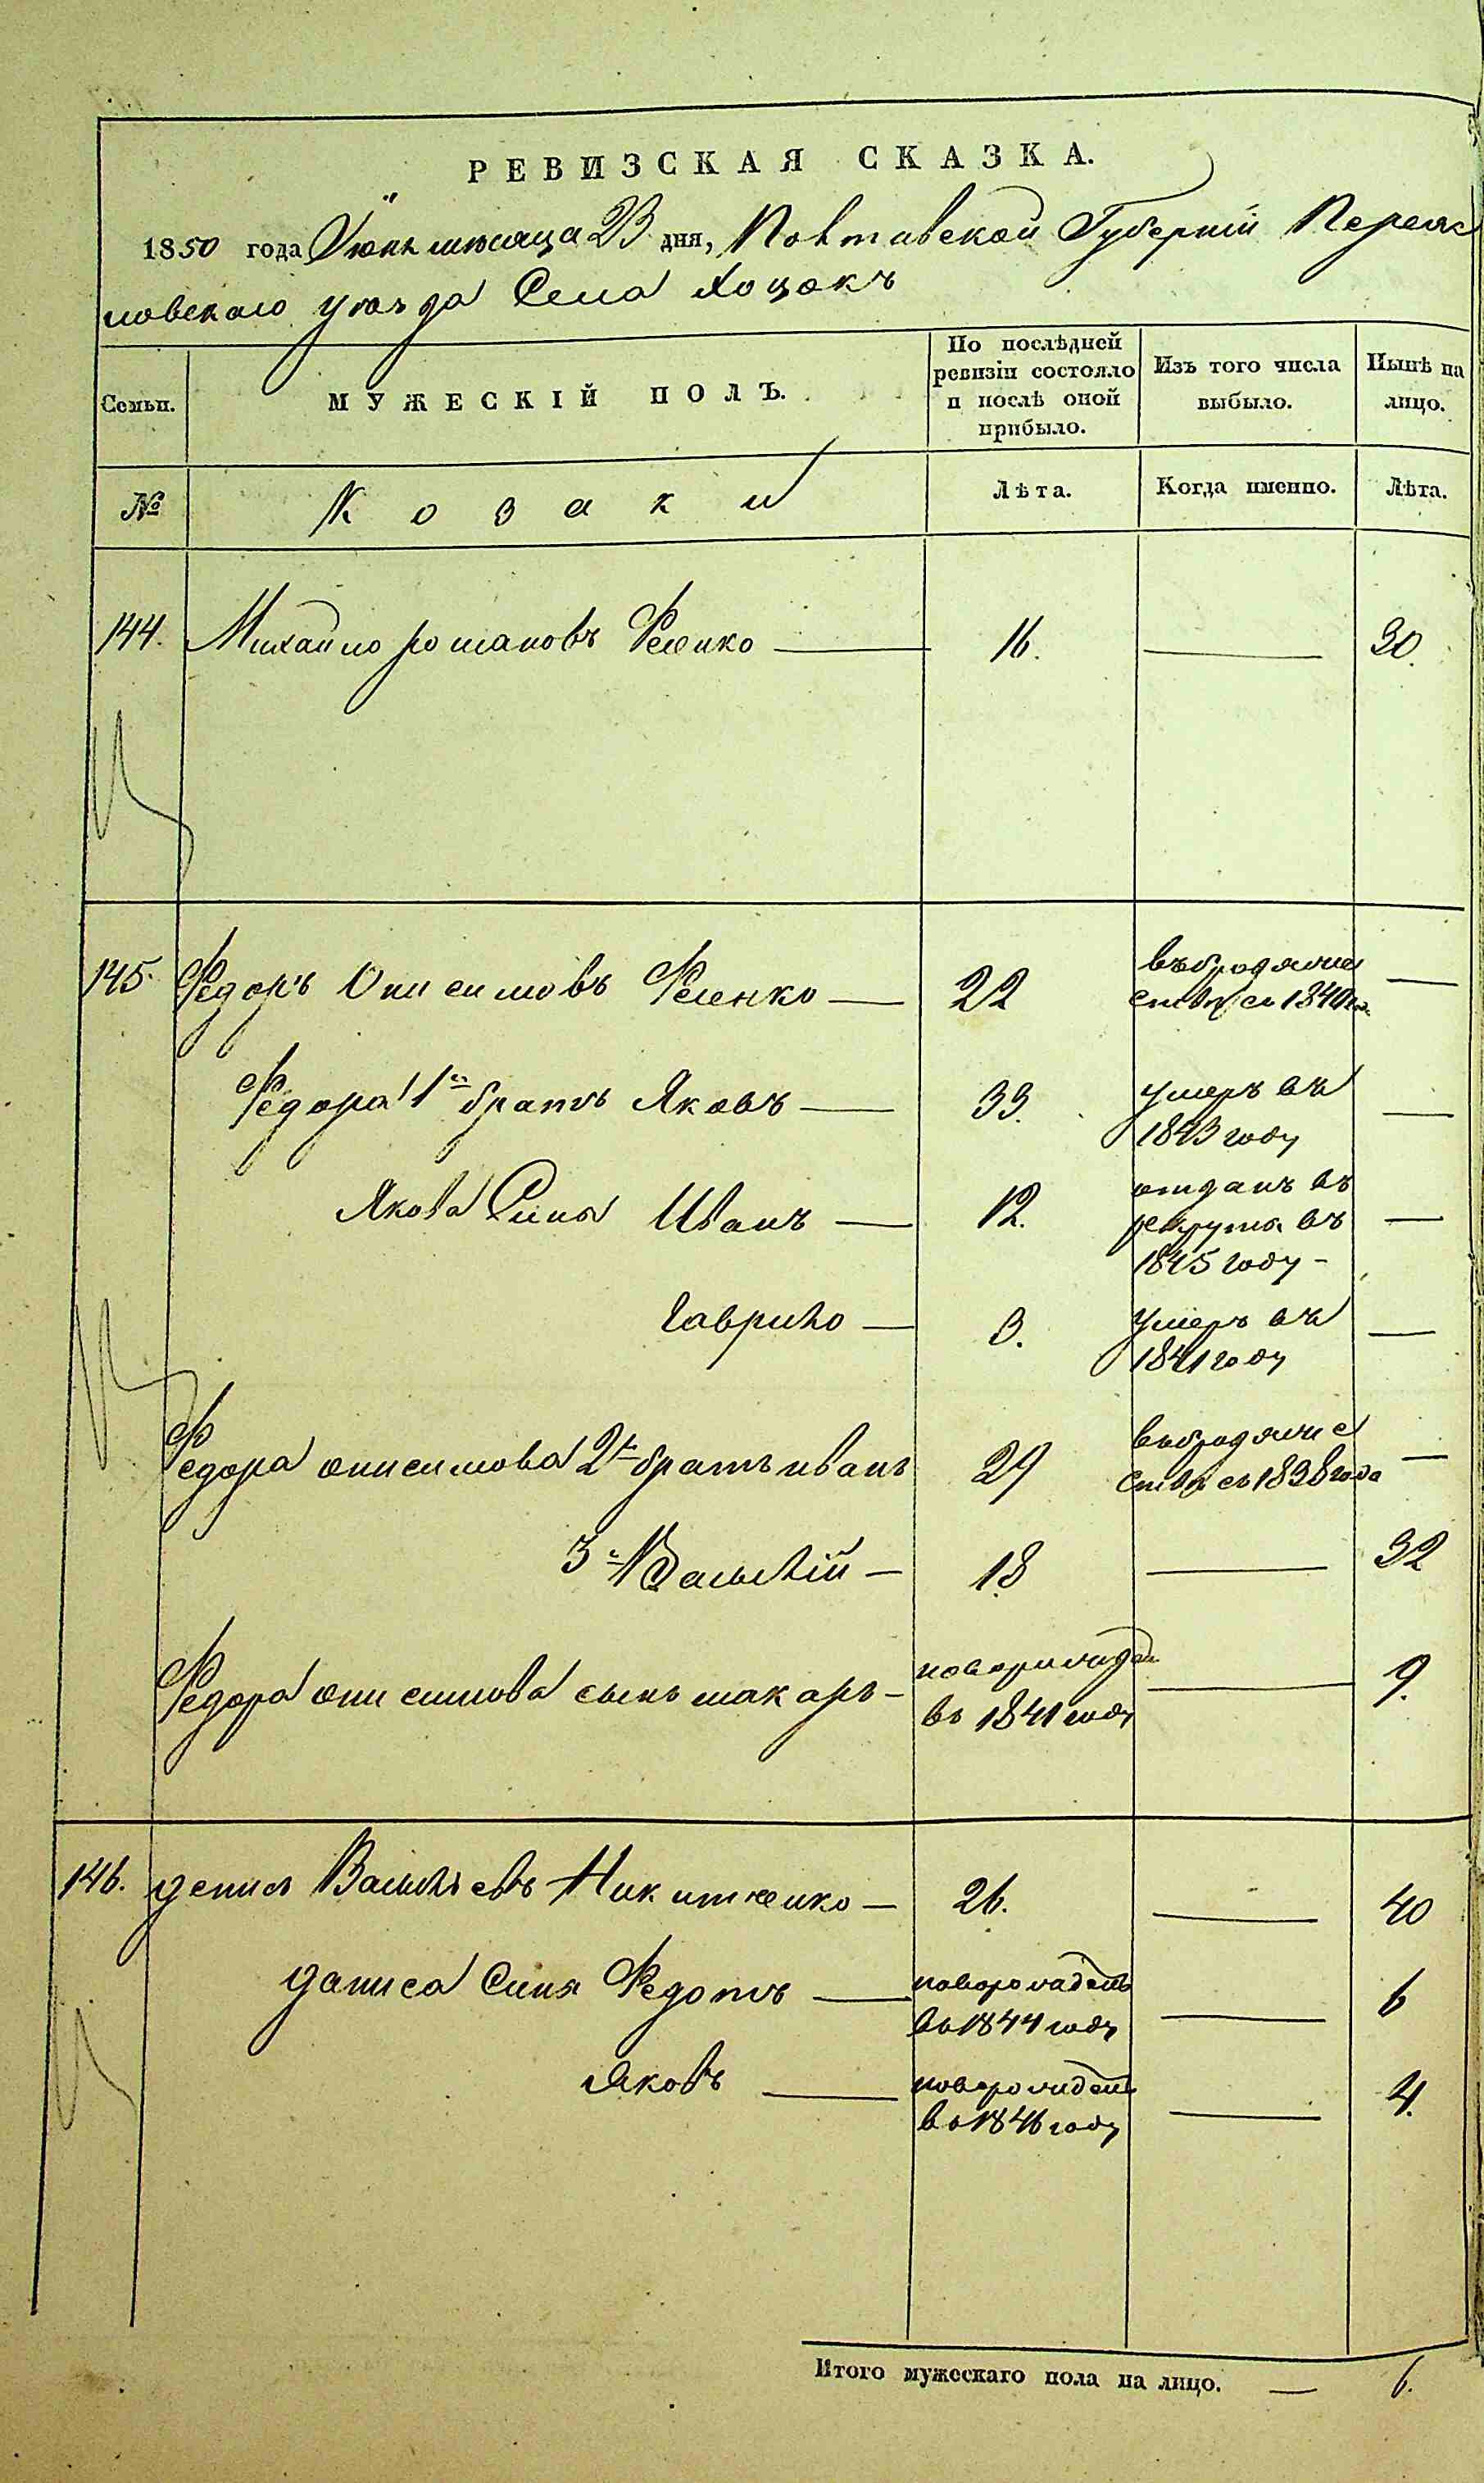 РЕВИЗСКАЯ СКАЗКА.
1850 года Июня мѣсяца 23 дня, Полтавской Губерніи Переяс
ловскаго уѣзда Села Хоцокъ
Семьи.
МУЖЕСКІЙ ПОЛЪ.
По послѣдней ревизіи состояло и послѣ оной прибыло.
Изъ того числа выбыло.
Нынѣ на лицо.
№
Козаки
Лѣта.
Когда именно.
Лѣта.
144. Михайло романовъ — 16. — 30.
145. Федоръ Онисимовъ — 22 въ бродяжне
ствѣ съ 1840 —
Федора 1й братъ Яковъ — 33. умеръ въ
1843 году —
Якова Сыны Иванъ — 12. отданъ въ
рекруты въ —
1845 году -
Гаврило — 3. умеръ въ
1841 году —
Федора онисимова 2й братъ иванъ 29 въ бродяжне
ствѣ съ 1838 года —
3й Василій — 18 — 32
Федора онисимова сынъ макаръ — новорожден
въ 1841 году — 9.
146. денисъ Васильевъ Никитченко — 26. — 40
дениса Сыны Федотъ — новорожденъ
въ 1844 году — 6
Яковъ — новорожденъ
въ 1846 году — 4.
Итого мужескаго пола на лицо. — 6.